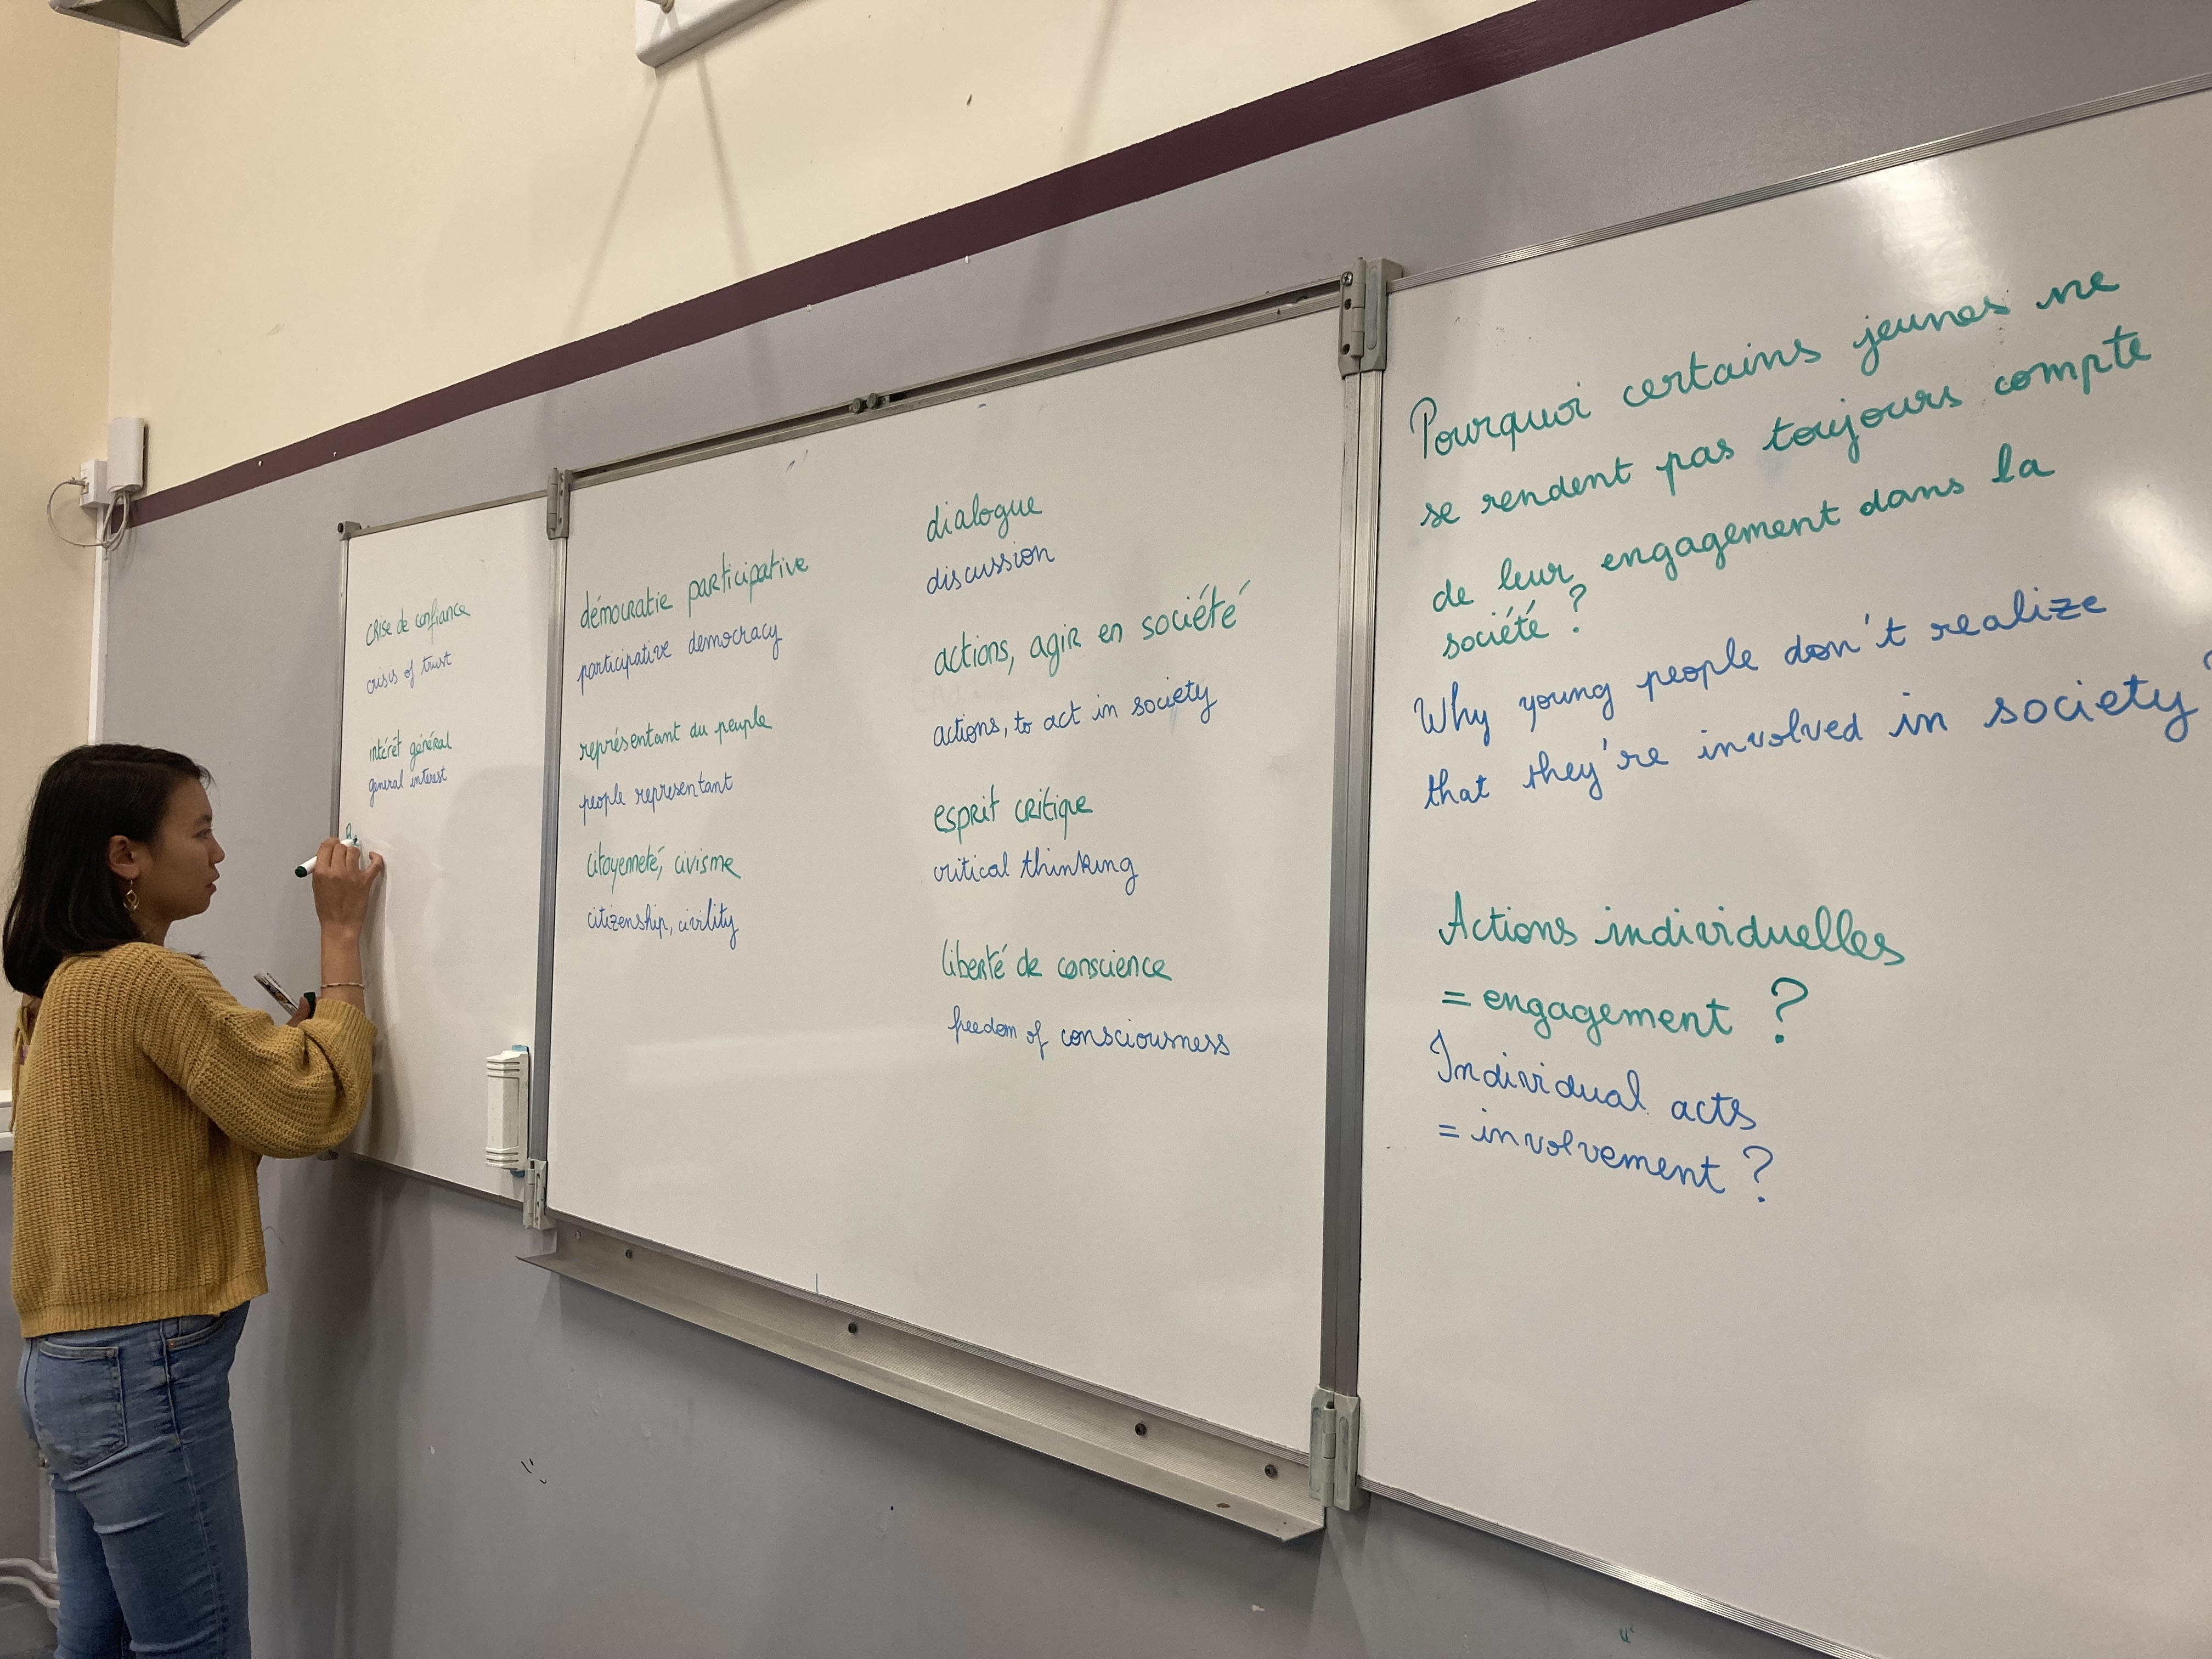 crise de confiance
crisis of trust
intérêt général
general interest
démocratie participative
participative democracy
représentant du peuple
people representant
citoyenneté, civisme
citizenship, civility
dialogue
discussion
actions, agir en société
actions, to act in society
esprit critique
critical thinking
liberté de conscience
freedom of consciousness
Pourquoi certains jeunes ne
se rendent pas toujours compte
de leur engagement dans la
société ?
Why young people don't realize
that they're involved in society ?
Actions individuelles
= engagement ?
Individual acts
= involvement ?